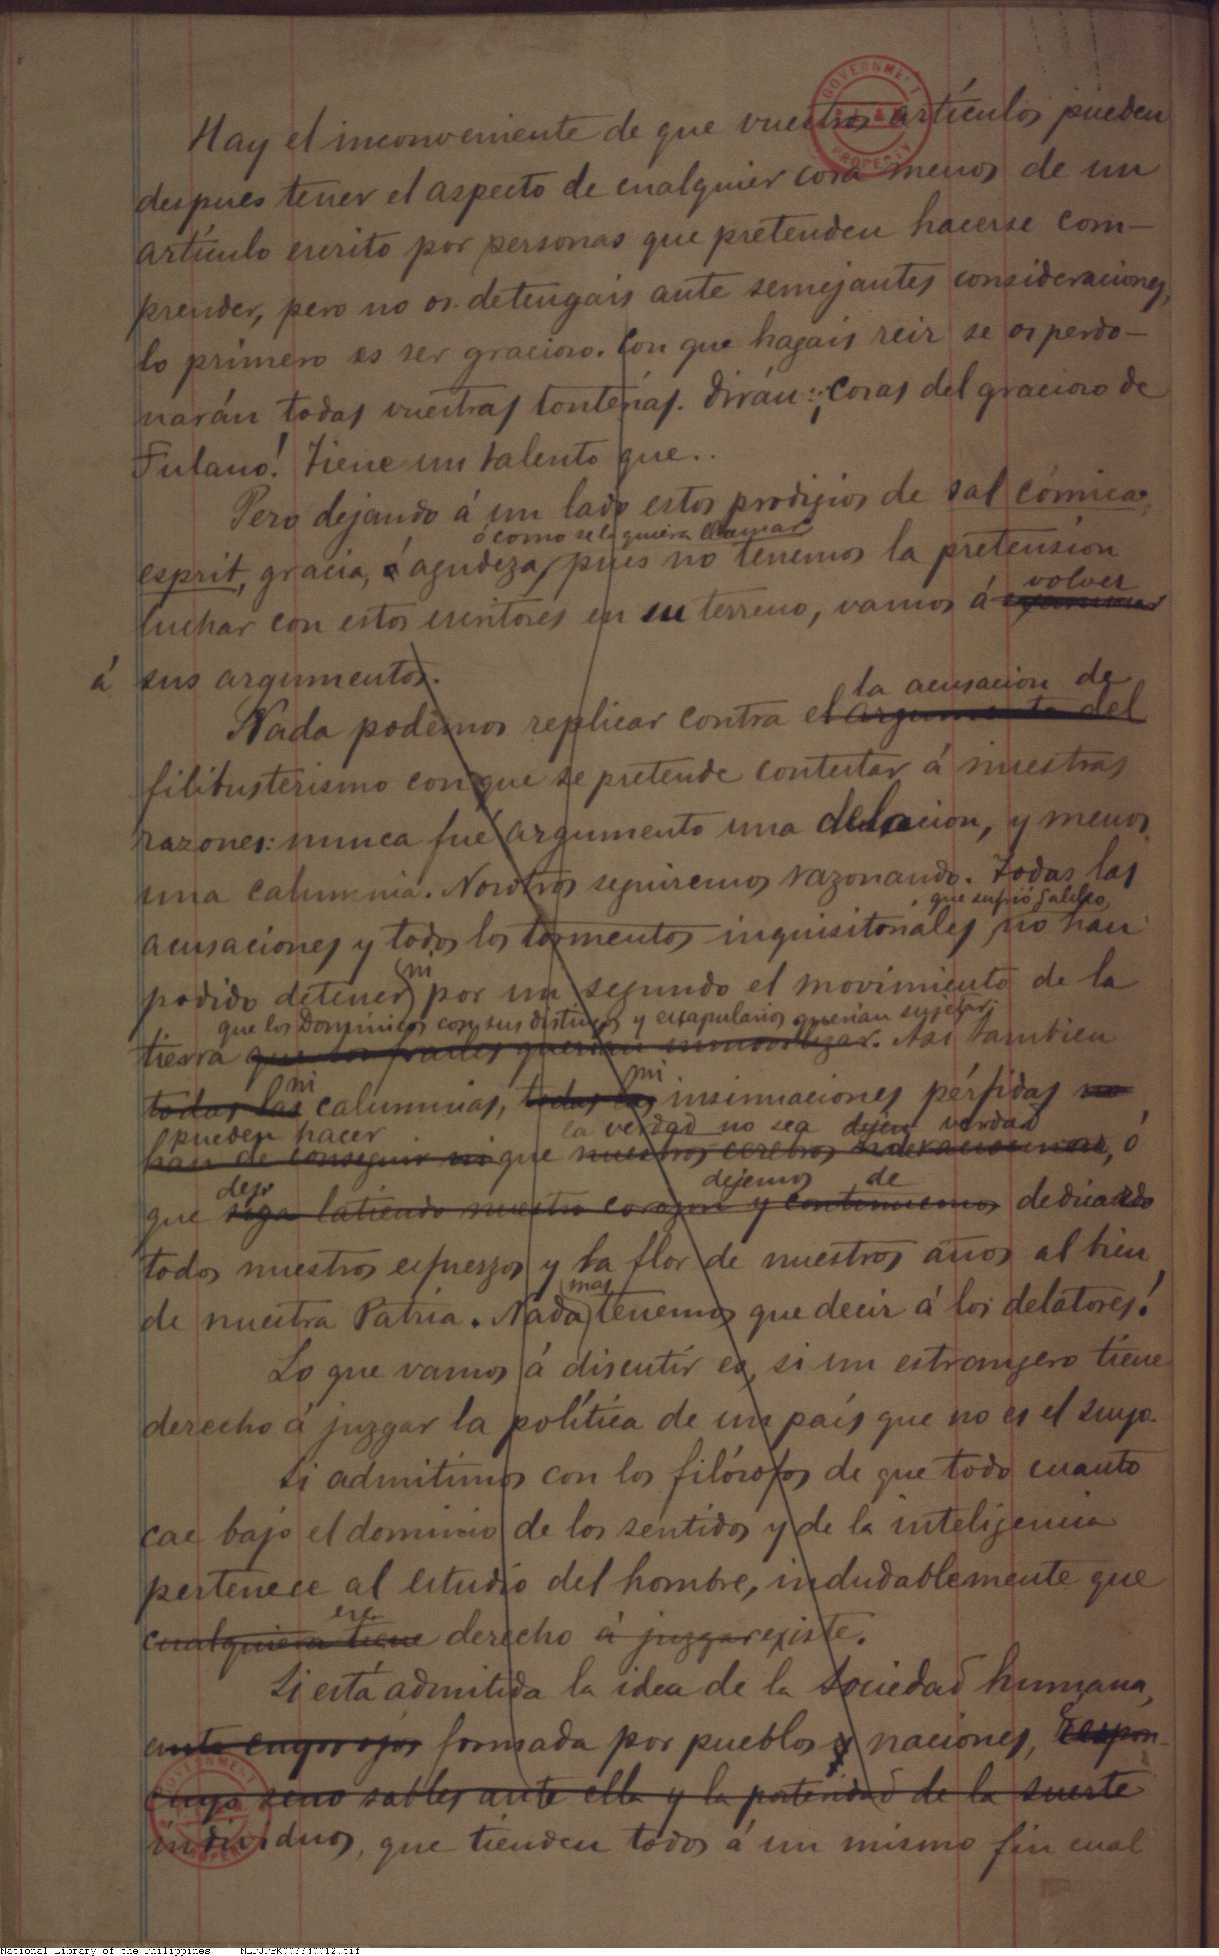 GOVERNMENT PROPERTY
Hay el inconveniente de que vuestros artículos pueden
despues tener el aspecto de cualquier cosa menos de un
artículo escrito por personas que pretenden hacerse com-
prender, pero no os detengais ante semejantes consideraciones,
lo primero es ser gracioso. Con que hagais reir se os perdo-
narán todas vuestras tonterías. Dirán: ¡Cosas del gracioso de
Fulano! Tiene un talento que..
Pero dejando á un lado estos prodigios de sal cómica,
ó como se le quiera llamar
esprit, gracia, ó agudeza, pues no tenemos la pretensión
volver
luchar con estos escritores en su terreno, vamos á
á sus argumentos.
la acusacion de
Nada podemos replicar contra el argumento del
filibusterismo con que se pretende contestar á nuestras
razones: nunca fué argumento una delacion, y menos
una calumnia. Nosotros seguiremos razonando. Todas las
que sufrió Galileo,
acusaciones y todos los tormentos inquisitoriales no han
ni
podido detener por un segundo el movimiento de la
que los Dominicos con sus distingos y escapularios querian sujetar
tierra que los frailes querian inmovilizar. Asi tambien
ni ni
todas las calumnias, todas las insinuaciones pérfidas no
pueden hacer la verdad no sea verdad
han de conseguir ni que nuestros cerebros, ó
deje dejemos de
que siga latiendo nuestro corazon y continuemos dedicando
todos nuestros esfuerzos y la flor de nuestros años al bien
mas
de nuestra Patria. Nada tenemos que decir á los delatores!
Lo que vamos á discutir es, si un estranjero tiene
derecho á juzgar la política de un país que no es el suyo.
Si admitimos con los filósofos de que todo cuanto
cae bajo el dominio de los sentidos y de la inteligencia
pertenece al estudio del hombre, indudablemente que
ese
cualquiera tiene derecho á juzgar existe.
Si está admitida la idea de la Sociedad humana,
ante cuyos ojos formada por pueblos y naciones, respon-
sables ante ella y la posteridad de la suerte
individuos, que tienden todos á un mismo fin cual
GOVERNMENT PROPERTY
National Library of the Philippines